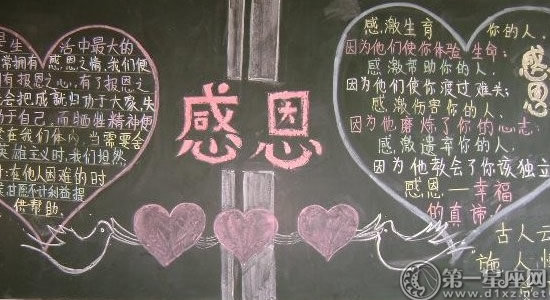 是生 活中最大的
常拥有感恩之情,我们便
有报恩之心,有了报恩之
会把成就归功于大家,失
于自己,而牺牲精神便
在我们体内,当需要舍
英雄主义时,我们坦然
在他人困难的时
甘愿不计利益提
供帮助.
感恩
感激生育 你的人.
因为他们使你体验 生命;
感激帮助你的人.
因为他们使你渡过难关;
感激伤害你的人.
因为他磨炼了你的心志;
感激遗弃你的人.
因为他教会了你该独立
感恩一幸福
的真谛
感恩
古人云
施人
第一星座网
www.d1xz.net